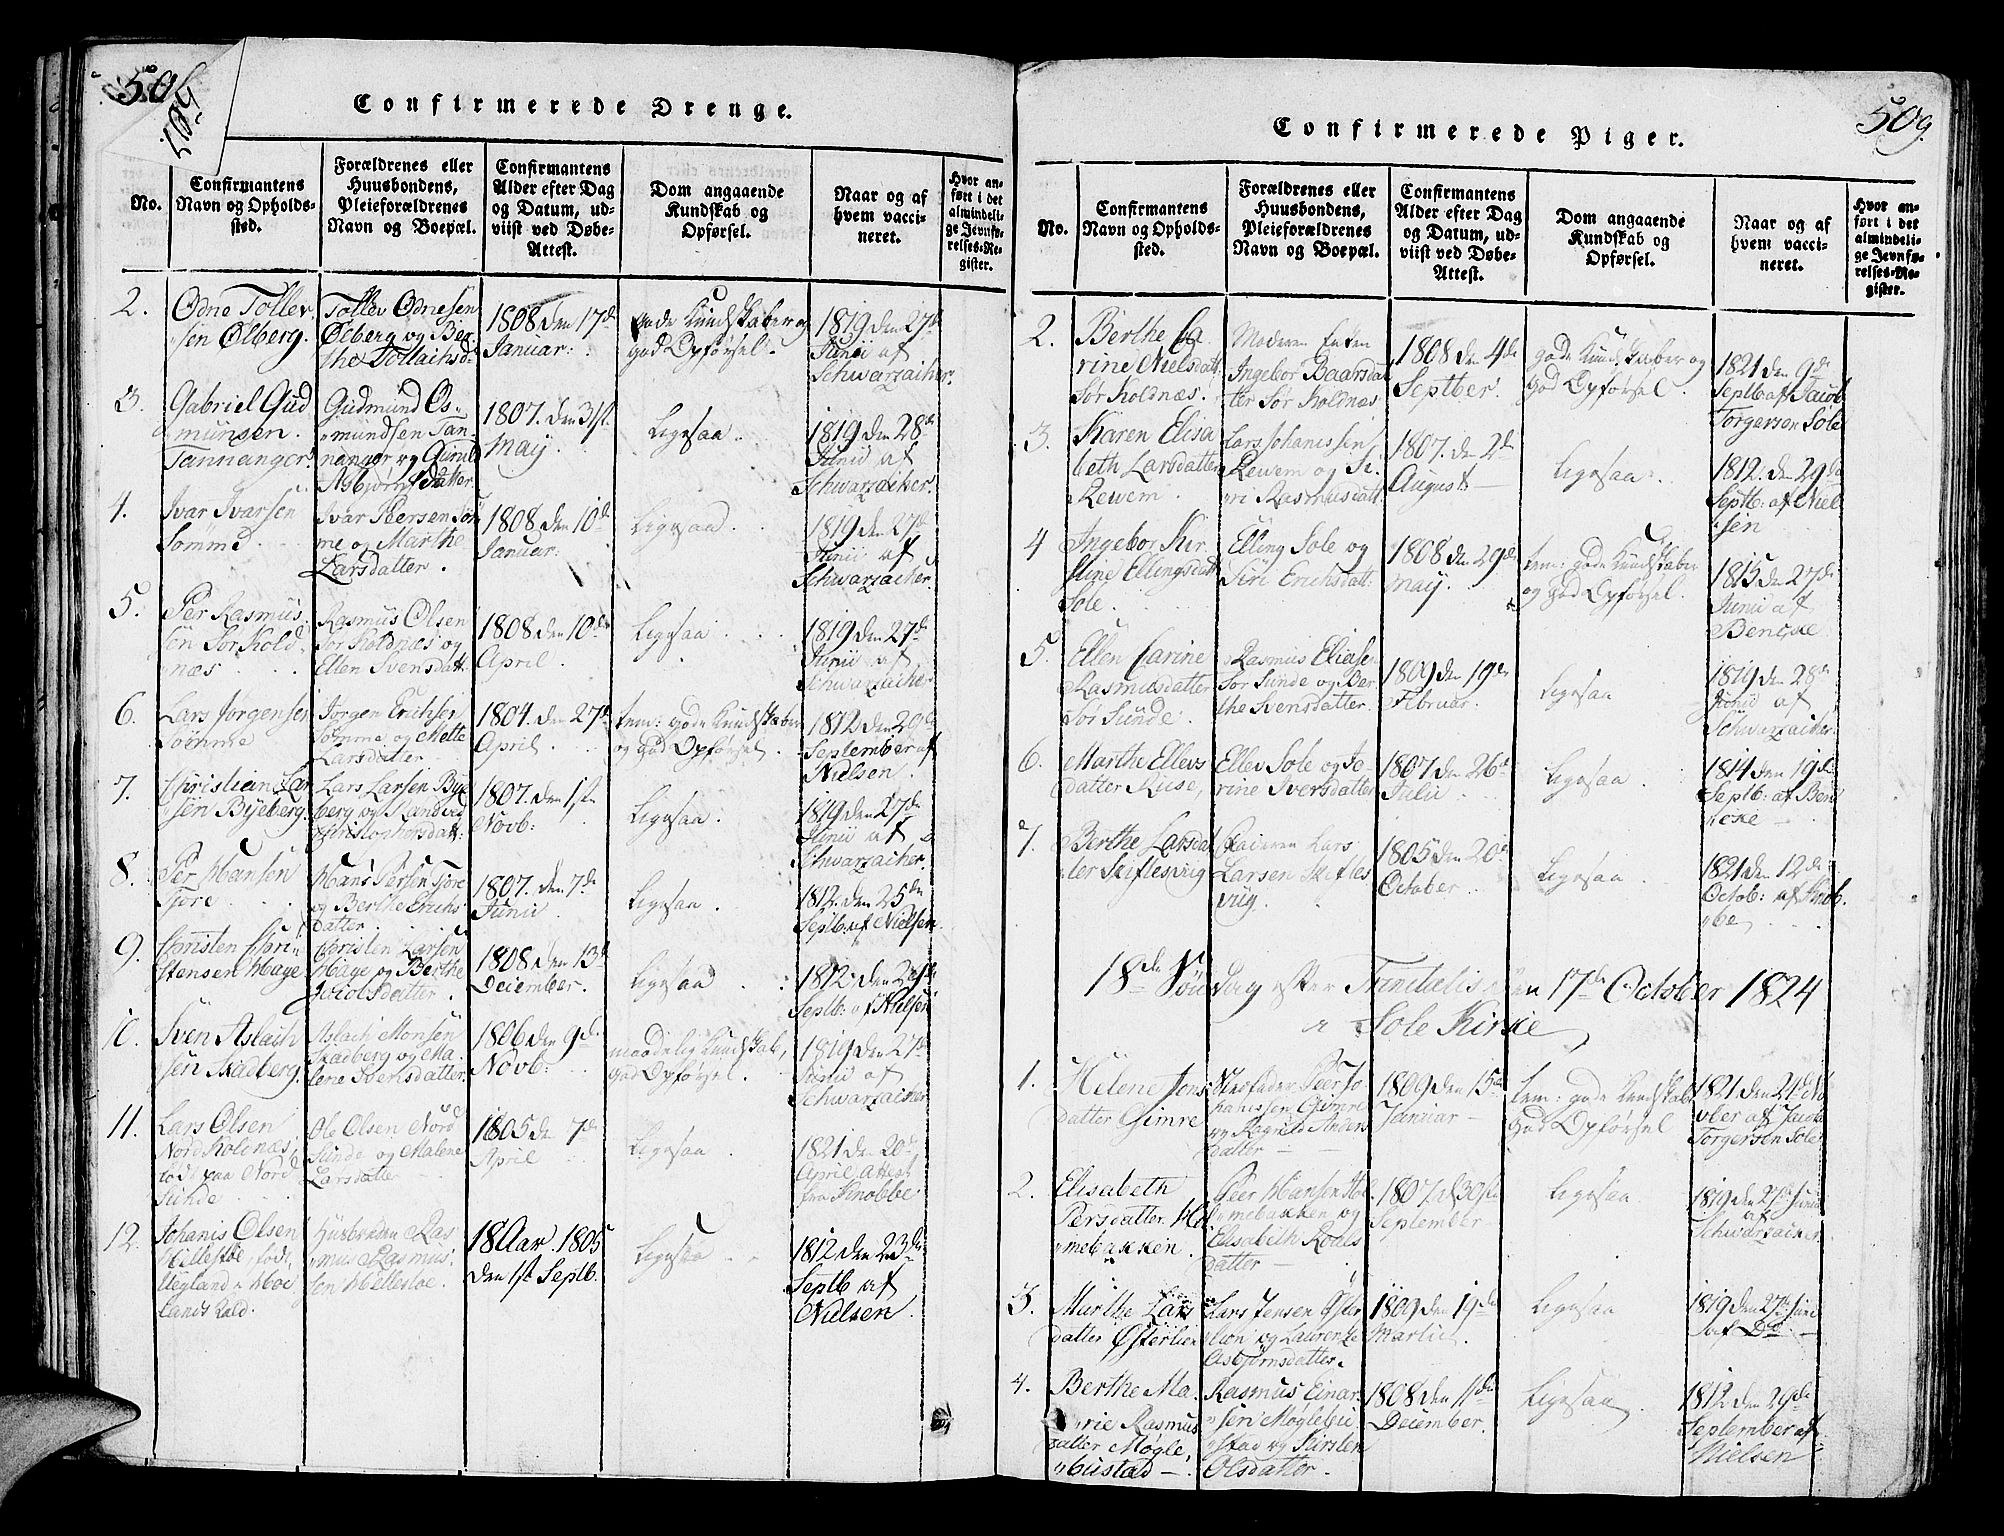 508
507
Confirmerede Drenge.
No.
Confirmantens
Navn og Opholds-
sted.
Forældrenes eller
Huusbondens,
Pleieforældrenes
Navn og Boepæl.
Confirmantens
Alder efter Dag
og Datum, ud-
viist ved Døbe-
Attest.
Dom angaaende
Kundskab og
Opførsel.
Naar og af
hvem vacci-
neret.
Hvor an-
ført i det
almindeli-
ge Jevnfø-
relses-Re-
gister.
2.
Odne Tollev
sen Ølberg.
Tollev Odnesen
Ølberg og Ber
the Tollachsd.
1808 den 17de
Januar:
gode Kundskaber og
god Opførsel.
1819 den 27de
Junii af
Schwarzacher.
3.
Gabriel Gud
munsen
Tannanger.
Gudmund Os-
mundsen Tan-
nanger og Gunild
Asbjørnsdatter.
1807. den 31st.
May.
Ligesaa.
1819 den 28de
Junii af
Schwarzacher.
4.
Ivar Ivarsen
Sømme
Ivar Iversen Søm
me og Marthe
Larsdatter.
1808 den 10de
Januar:
Ligesaa.
1819 den 27de
Junii af
Schwarzacher.
5.
Per Rasmus
sen Sør Kold
næs.
Rasmus Olsen
Sør Koldnæs og
Ellen Svensdatt.
1808 den 10de
April.
Ligesaa
1819 den 27de
Junii af
Schwarzacher
6.
Lars Jørgensen
Sømme
Jørgen Erichsen
Sømme og Mette
Larsdatter
1804. den 27de
April.
tem: gode Kundskaber
og god Opførsel.
1812 den 29de
September af
Nielsen.
7.
Christian Lar
sen Byeberg.
Lars Larsen Bye
berg og
Christophersdatt.
1807. den 1ste
Novb:
Ligesaa.
1819 den 27de
Junii af
Schwarzacher.
8.
Per Hansen
Tjore
Hans Persen Tjore
og Berthe Erichs
datter
1807. den 7de
Junii.
Ligesaa.
1812. den 25de
Septb: af Nielsen.
9.
Christen Chri-
stensen Hage
Christen Larsen
Hage og Berthe
datter.
1808 den 13de
December.
Ligesaa
1812 den 29de
Septb: af Nielsen
10.
Sven Aslach
sen Skadberg.
Aslach Monsen
Skadberg og Ma-
lene Svensdatter.
1806 den 9de
Novb:
maadelig Kundskab,
god Opførsel.
1819 den 27de
Junii af
Schwarzacher
11.
Lars Olsen
Nord Kolnæs,
fød paa Nord
Sunde
Ole Olsen Nord
Sunde og Malene
Larsdatter
1805 den 7de
April
Ligesaa
1821 den 20de
April attest
fra Knobbe
12.
Johanis Olsen
Hellestøe, fød
Høyland
Husbonden Ras-
mus Rasmus-
sen Hellestøe.
18 Aar. 1805
den 1ste Septb.
Ligesaa
1812 den 23de
Septb af
Nielsen
509.
Confirmerede Piger.
No.
Confirmantens
Navn og Opholds-
sted.
Forældrenes eller
Huusbondens,
Pleieforældrenes
Navn og Boepæl.
Confirmantens
Alder efter Dag
og Datum, ud-
viist ved Døbe-
Attest.
Dom angaaende
Kundskab og
Opførsel.
Naar og af
hvem vacci-
neret.
Hvor an-
ført i det
almindeli-
ge Jevnfø-
relses-Re-
gister.
2.
Berthe Ca
rine Nielsdatt.
Sør Koldnæs.
Moderen Enken
Ingebor Baarsdat
ter Sør Koldnæs
1808 den 4de
Septber.
gode Kundskaber og
god Opførsel.
1821 den 9de
Septb af Jacob
Torgersen Sole
3.
Karen Elisa
beth Larsdatter
Rewem.
Lars Johanissen
Rewem og Si-
ri Rasmusdatt.
1807. den 2de
August
Ligesaa.
1812. den 29de
Septb: af Niel
sen
4
Ingebor Kir
stine Ellingsdatt.
Sole.
Elling Sole og
Siri Erichsdatt.
1808 den 29de
May.
tem: gode Kundskaber
og god Opførsel.
1815 den 27de
Junii af
Bencke
5.
Ellen Carine
Rasmusdatter
Sør Sunde.
Rasmus Eliasen
Sør Sunde og Ber
the Svensdatter.
1809 den 19de
Februar:
Ligesaa
1819 den 28de
Junii af
Schwarzacher
6.
Marthe Ellevs
datter Ruse,
Ellev Sole og Jo
rine Sversdatter
1807 den 26de
Julii
Ligesaa
1814 den 19de
Septb: af Ben
cke
7.
Berthe Larsdat
ter Skiflesvig
Faderen Lars
Larsen Skifles
viig.
1805 den 20de
October
Ligesaa.
1821 den 12de
Octob: af Knob
be
18de Søndag efter Trinitatis den 17de October 1824
i Sole Kirke
1.
Helene Jons
datter Gimre
Stedfader Peer Jo
hanissen Gimre
og Ragnild Anders
datter
1809 den 15de
Januar
tem: gode Kundskab
god Opførsel
1821 den 24de No
vber af Jacob
Torgersen Sole
2.
Elisabeth
Persdatter Hol
mebakken.
Peer Hansen Hol
mebakken og
Elisabeth Roals
datter
1807. d 30ste
September
Ligesaa
1819 den 27de Junii
af
Schwarzacher
3.
Marthe Lars
datter Østerlien
Lars Jensen Øster
lien og Laurenze
Asbjørnsdatter.
1809 den 19de
Martii.
Ligesaa
1819 den 27de Junii
af Do
4.
Berthe Ma-
rie Rasmus
datter Møgle
bustad
Rasmus Einar
sen Møglebu
stad og Kirsten
Olsdatter.
1808 den 11de
December.
Ligesaa.
1812 den 29de
September af
Nielsen